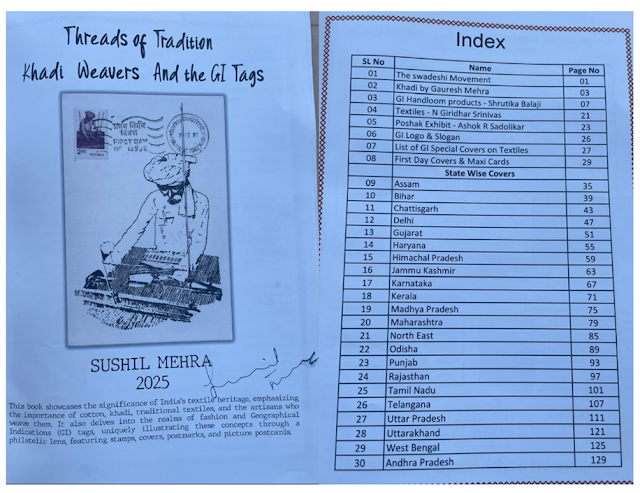 Threads of Tradition
Khadi Weavers And the GI Tags
प्रथम दिवस
FIRST DAY
OF ISSUE
SUSHIL MEHRA
2025
This book showcases the significance of India's textile heritage, emphasizing
the importance of cotton, khadi, traditional textiles, and the artisans who
weave them. It also delves into the realms of fashion and Geographical
Indications (GI) tags, uniquely illustrating these concepts through a
philatelic lens, featuring stamps, covers, postmarks, and picture postcards.
Index
SL No Name Page No
01 The swadeshi Movement 01
02 Khadi by Gauresh Mehra 03
03 GI Handloom products - Shrutika Balaji 07
04 Textiles - N Giridhar Srinivas 21
05 Poshak Exhibit - Ashok R Sadolikar 23
06 GI Logo & Slogan 26
07 List of GI Special Covers on Textiles 27
08 First Day Covers & Maxi Cards 29
State Wise Covers
09 Assam 35
10 Bihar 39
11 Chattisgarh 43
12 Delhi 47
13 Gujarat 51
14 Haryana 55
15 Himachal Pradesh 59
16 Jammu Kashmir 63
17 Karnataka 67
18 Kerala 71
19 Madhya Pradesh 75
20 Maharashtra 79
21 North East 85
22 Odisha 89
23 Punjab 93
24 Rajasthan 97
25 Tamil Nadu 101
26 Telangana 107
27 Uttar Pradesh 111
28 Uttarakhand 121
29 West Bengal 125
30 Andhra Pradesh 129